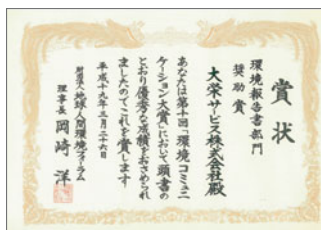 賞状
環境報告書部門
奨励賞
大栄サービス株式会社殿
あなたは第十回「環境コミュニ
ケーション大賞」において頭書の
とおり優秀な成績をおさめられ
ましたのでこれを賞します
平成十九年三月二十六日
財団法人地球・人間環境フォーラム
理事長 岡崎洋